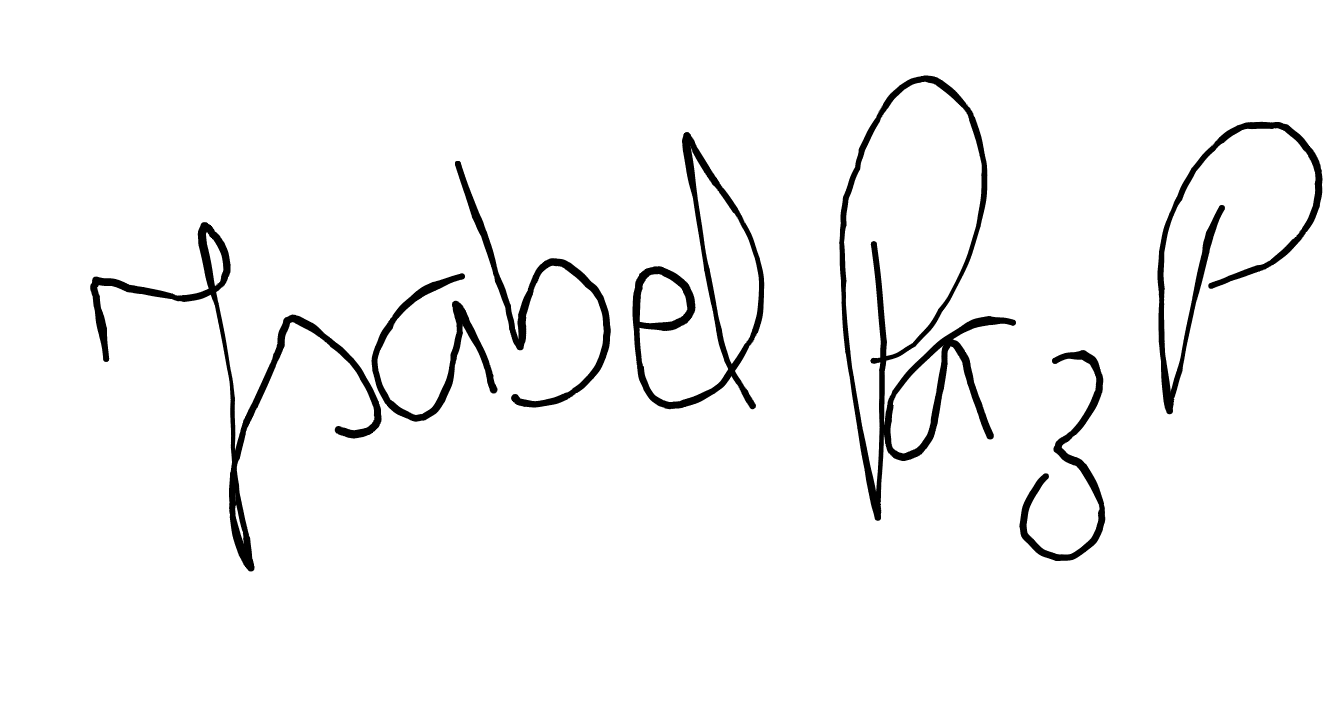 Isabel Paz P